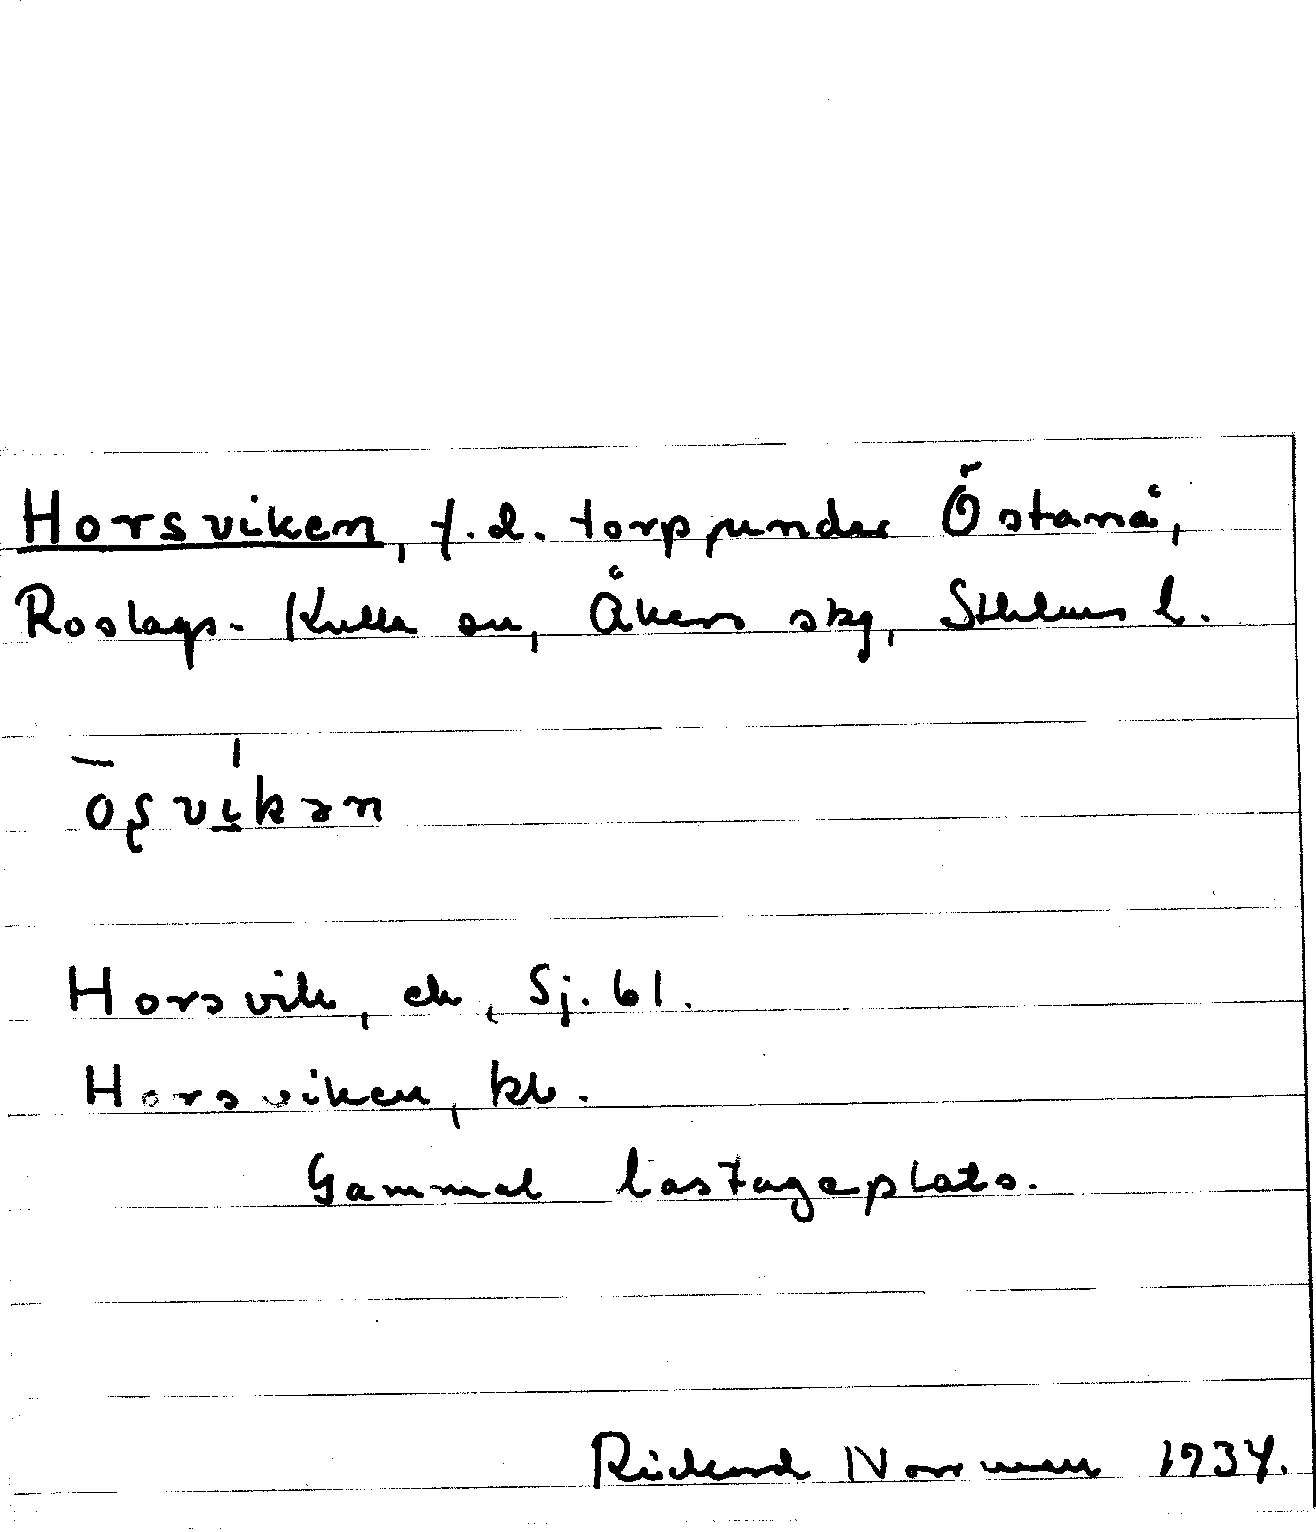 Horsviken, f.d. torp under Östanå,
Roslags-Kulla sn, Åkers skg, Sthlms l.
ōʂvi̱kən
Horsvik, ek, Sj. 61.
Horsviken, kb.
Gammal lastageplats.
Rickard Norrman 1934.